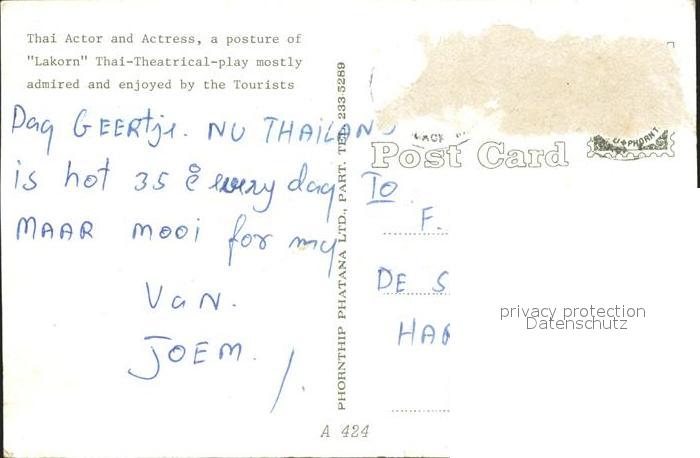 Thai Actor and Actress, a posture of
"Lakorn" Thai-Theatrical-play mostly
admired and enjoyed by the Tourists
Dag GEERTje. NU THAILAND
is hot 35 °C every day
MAAR mooi for my
VaN.
JOEM.
PHORNTHIP PHATANA LTD., PART. TEL. 233-5289
A 424
Post Card
To
F.
DE S
HAR
privacy protection
Datenschutz